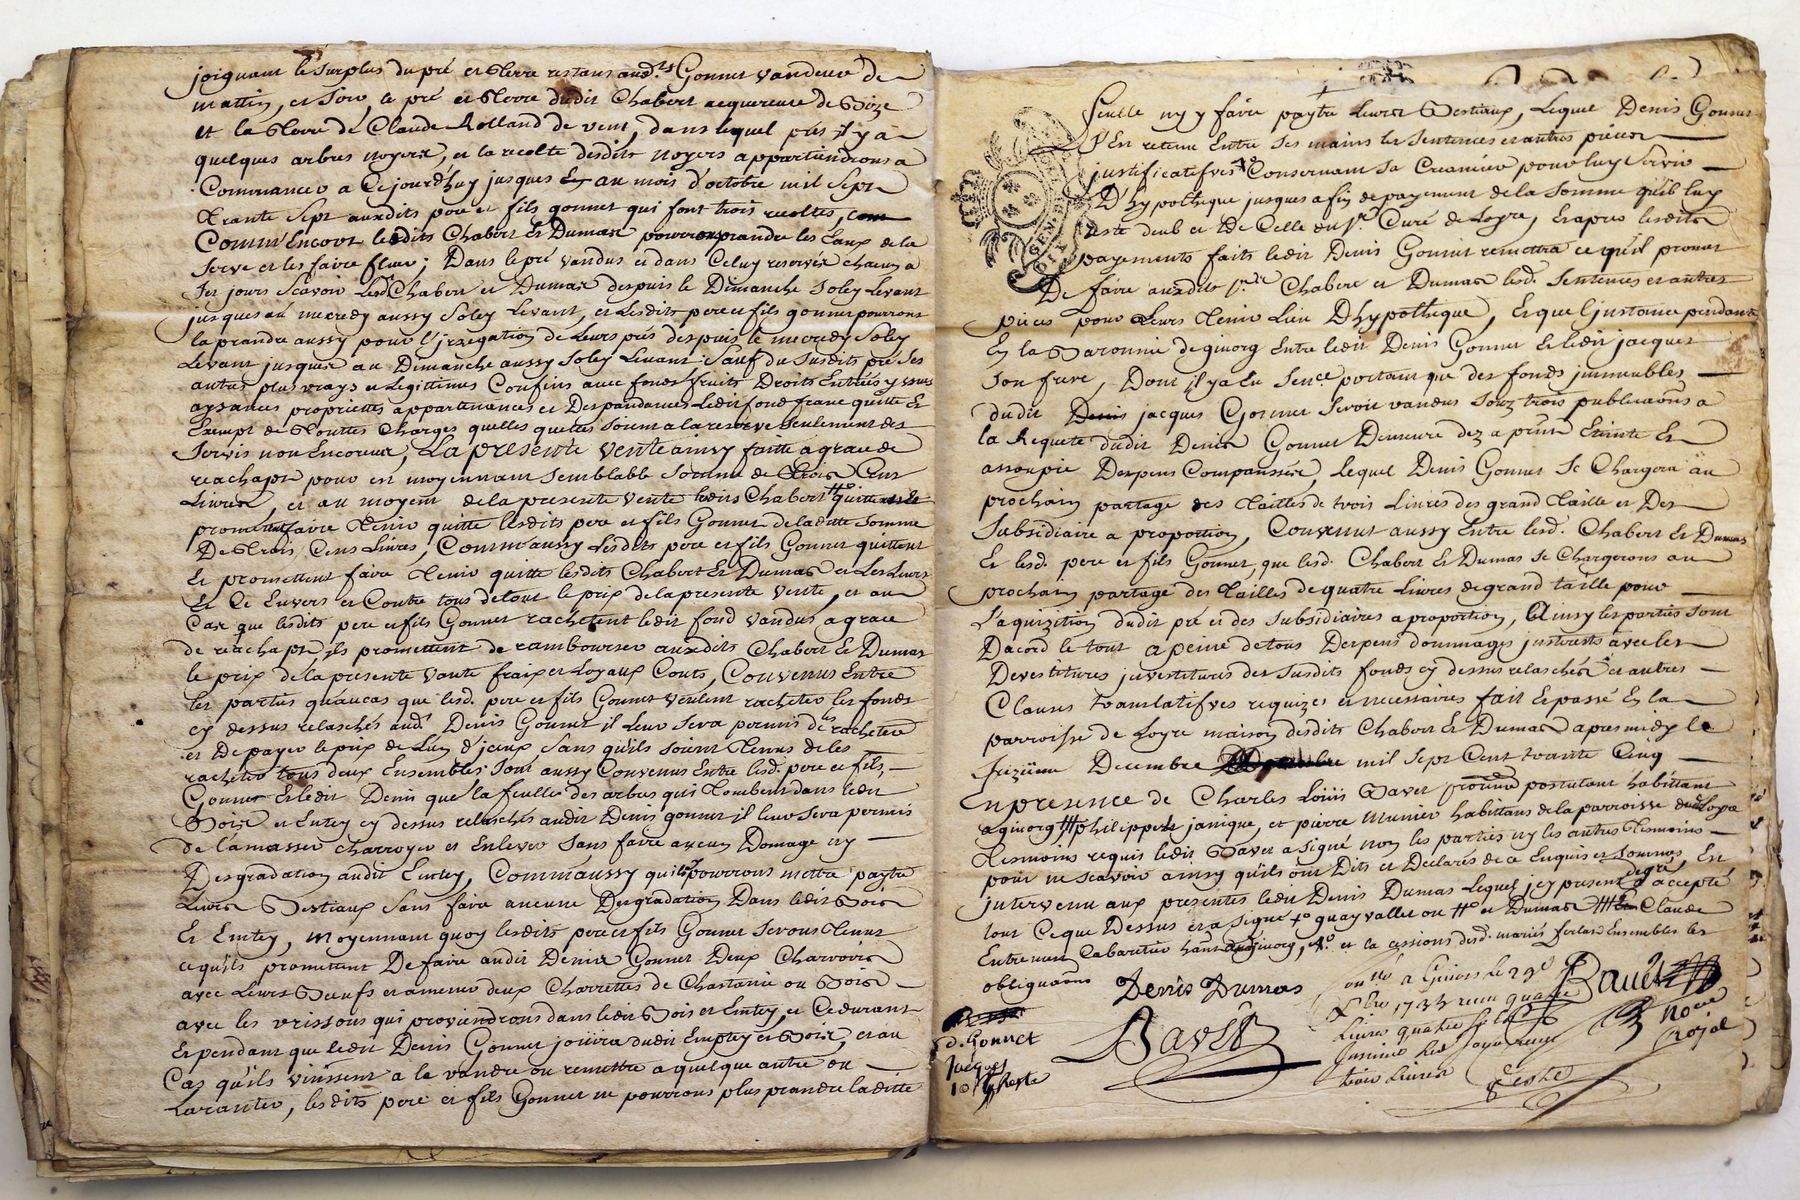 joignant le surplus du pré et Terre restans aud.ts Gonnet vandeur de
mattin, et soir, le pré et Terre dudit Chabert acquereur de Bize
et la Terre de Claude Rolland de vent, dans lequel prés il y a
quelques arbres noyers, et la recolte desdits noyers appartiendrons a
Commancer a Cejourdhuy jusques au mois d'octobre mil Sept
Trante Sept auxdits pere et fils gonnet qui font trois recoltes,
Comm'Encore lesdits Chabert Et Dumas pourrons prandre les Eaux de la
Serve et les faire fluer; Dans le pré vandus et dans Celuy reservé chacun a
Ses jours Scavoir Lesd Chabert et Dumas despuis le Dimanche Soley Levant
jusques au mecredy aussy Soley Levant, et Lesdits pere et fils gonnet pourrons
la prandre aussy pour l'irregation de Leurs prés despuis le mecredy Soley
Levant jusques au Dimanche aussy Soley Levant Sauf du Susdits pré Ses
autres plus vrays et Legittimes Confins avec fonds fruits Droits Entrées yssues
aysances proprietes appartenances et Despandances Ledit fond franc quitte Et
Exempt de Touttes Charges quelles quelles soient a la reserve Seulement des
Servis non Encourus, La presente vente ainsy faitte a grace de
reachapt pour et moyennant Semblable Somme de Trois Cent
Livres, et au moyent de la presente vente lesdits Chabert #o quittent Et
promettent faire Tenir quitte lesdits pere et fils Gonnet de laditte Somme
De Trois Cens Livres, Comm'aussy Lesdits pere et fils Gonnet quittent
Et promettent faire Tenir quitte lesdits Chabert Et Dumas et Les Leurs
Et Ce Envers et Contre tous de tout le prix de la presente vente, et au
Cas que lesdits pere et fils Gonnet rachetent ledit fond vandus a grace
de reachapt ils promettent de rambourser auxdits Chabert Et Dumas
le prix de la presente vante fraix et Loyaux Couts, Convenus Entre
les parties qu'aucas que lesd. pere et fils Gonnet veulent racheter les fonds
cy dessus relaschés aud. Denis Gonnet il leur Sera permis de racheter
et De payer le prix de L'un d'jceux Sans qu'ils soient Tenus de les
racheter tous deux Ensembles Sont aussy Convenus Entre lesd. pere et fils
Gonnet Et ledit Denis que la feuille des arbres qui Tombent dans ledit
Bois et Emtey cy dessus relaschés audit Denis gonnet il leur Sera permis
de L'amasser charroyer et Enlever Sans faire aucun Domage ny
Desgradation audit Emtey, Comm'aussy qu'ils pourrons mettre paytre
Leurs Bestiaux Sans faire aucune Degradation Dans ledit Bois
Et Emtey, moyennant quoy lesdits pere et fils Gonnet Serons Tenus
ce qu'ils promettent De faire audit Denis Gonnet Deux Charrois
avec Leurs Boeufs et amener deux Charrettes de Chastanie ou Bois
avec les verissons qui proviendrons dans ledit Bois et Emtey, et Ce durant
Et pendant que ledit Denis Gonnet jouira dudit Empley et Bois, et au
Cas qu'ils vinssent a le vandre ou remettre a quelque autre ou
Laranter, lesdits pere et fils Gonnet ne pourrons plus prandre laditte
feuille ny y faire paytre leurs Bestiaux, Lequel Denis Gonnet
S'Est retenu Entre Ses mains les Sentences et autres pieces
justificatifves Consernant Sa Creancier pour luy Servir
D'hypotheque jusques a fin de payement de la Somme qu'il luy
reste deub et De Celle du Sr. Curé de Loyre, et apres lesdits
payements faits ledit Denis Gonnet remettra ce qu'il promet
De faire auxdits Chabert et Dumas lesd. Sentences et autres
pieces pour Leurs Tenir Lieu D'hypotheque, Et que L'jnstance pendante
En la Baronnie de givorg Entre ledit Denis Gonnet Et ledit jacques
Son frere, Dont il y a Eu Sence portant que des fonds jmmeubles
dudit jacques Gonnet Seroit vandus Sous trois publications a
la Requete dudit Denis Gonnet Demeure dez a present Eteinte Et
assoupie Despens Compansés, Lequel Denis Gonnet Se Chargera au
prochain partage des Tailles de trois Livres des grand Taille et Des
Subsidiaire a proportion, Convenus aussy Entre lesd. Chabert Et Dumas
Et lesd. pere et fils Gonnet, que lesd. Chabert Et Dumas Se Chargerons au
prochain partage des Tailles de quatre Livres de grand taille pour
L'aquizition dudit pré et des Subsidiaires a proportion, Ainsy les parties Sont
Dacord le tout a peine de tous Despens dommages jnterests avec les
Devestitures jnvestitures des Susdits fonds cy dessus relaschés et autres
Clauses translatifves requizes et necessaires fait Et passé En la
parroisse de Loyre maison desdits Chabert Et Dumas apres midy le
Seizieme Decembre mil Sept Cent trante Cinq
En presence de Charles Loüis Bavet postulant habittant
a givorg #philippes janique, et pierre munier habittans de la parroisse de Loyre
Tesmoins requis ledit Bavet a Signé non les parties ny les autres Tesmoins
pour ne Scavoir ainsy qu'ils ont Dits et Declarés de ce Enquis et Sommés, Est
jntervenu aux presentes ledit Denis Dumas Lequel jcy present a accepté
tout Ceque Dessus et a Signé quay vallet ou #o et Dumas Claude
Cabaretier et la cessions desd. mariés Ensembles les
obligations
Denis Dumas
Bavet
d. Gonnet
Jacques
Bavet
Noire
rojal
Controllé a Givors le 29e
Xbre 1735 recu quatre
Livres quatre sols
trois Livres
Teste
GEN. DE LION